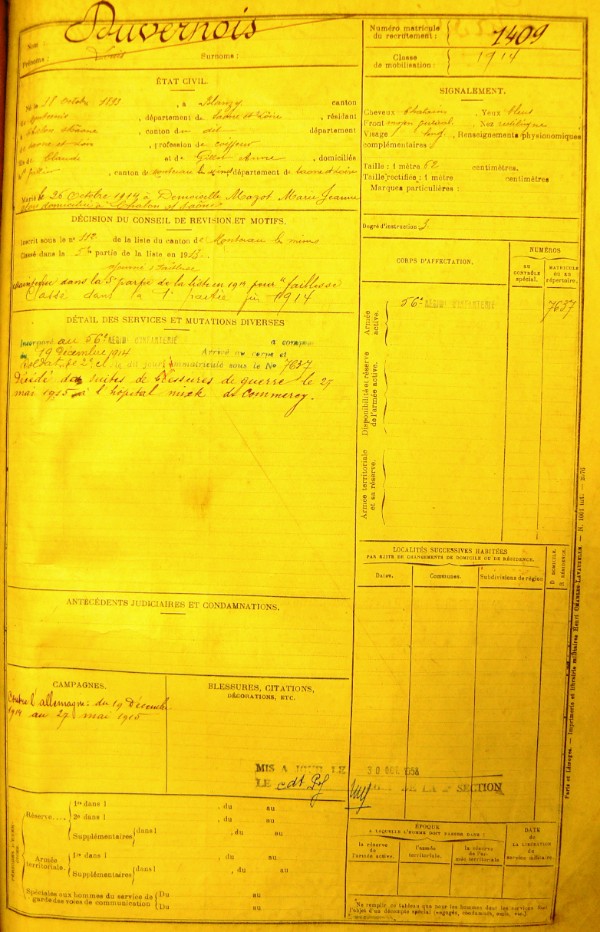 Nom : Duvernois
Prénoms : Surnoms :
Numéro matricule du recrutement : 1409
Classe de mobilisation : 1914
ÉTAT CIVIL.
Né le 28 octobre 1893, à Blanzy canton
, département de Saône et Loire, résidant
à Chalon s/Saône, canton du dit, département
de Saône et Loire, profession de coiffeur
fils de Claude et de Gillot Anne, domiciliés
, canton de Montceau les Mines, département de Saône et Loire
Marié le 26 Octobre 1914 à Demoiselle Mazot Marie Jeanne
SIGNALEMENT.
Cheveux châtains. Yeux bleus
Front moyen Nez rectiligne
Visage long. Renseignements physionomiques
complémentaires :
Taille : 1 mètre 62 centimètres.
Taille rectifiée : 1 mètre centimètres
Marques particulières :
Degré d'instruction 3.
DÉCISION DU CONSEIL DE REVISION ET MOTIFS.
Inscrit sous le n° 112 de la liste du canton de Montceau les Mines
Classé dans la 5e partie de la liste en 1913
ajourné faiblesse
dans la 5e partie de la liste en 1914 pour "faiblesse
Classé dans la 1e partie fin 1914
DÉTAIL DES SERVICES ET MUTATIONS DIVERSES
Incorporé au 56e RÉGION D'INFANTERIE à compter
du 19 Décembre 1914 Arrivé au corps et
soldat de 2e cl. le dit jour immatriculé sous le No 7637
Décédé des suites de blessures de guerre le 27
mai 1915 à l'hopital mixte de Commercy.
CORPS D'AFFECTATION.
NUMÉROS
AU CONTRÔLE spécial.
MATRICULE OU AU répertoire.
Armée active.
56e RÉGION D'INFANTERIE
7637
Disponibilité et réserve de l'armée active.
Armée territoriale et sa réserve.
LOCALITÉS SUCCESSIVES HABITÉES
PAR SUITE DE CHANGEMENTS DE DOMICILE OU DE RÉSIDENCE.
Dates. Communes. Subdivisions de région
D. DOMICILE.
R. RÉSIDENCE.
ANTÉCÉDENTS JUDICIAIRES ET CONDAMNATIONS.
CAMPAGNES.
Contre l'allemagne : du 19 Décembre
1914 au 27 mai 1915
BLESSURES, CITATIONS,
DÉCORATIONS, ETC.
MIS A JOUR LE 30
LE cdt DE LA SECTION
Réserve....
1re dans l , du au
2e dans l , du au
Supplémentaires dans l , du au
Armée territoriale.
1re dans l , du au
Supplémentaires dans l , du au
Spéciales aux hommes du service de
garde des voies de communication
Du au
Du au
ÉPOQUE
A LAQUELLE L'HOMME DOIT PASSER DANS :
la réserve de l'armée active.
l'armée territoriale.
la réserve de l'armée territoriale
DATE
DE LA LIBÉRATION
du service militaire.
Paris et Limoges. — Imprimerie et librairie militaires Henri CHARLES-LAVAUZELLE.